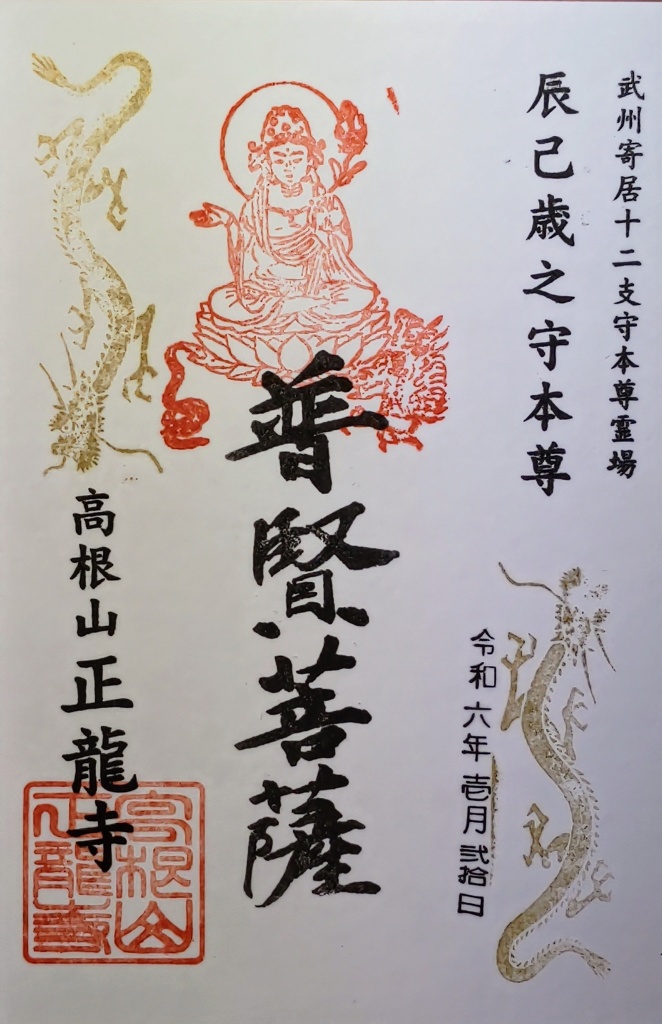 武州寄居十二支守本尊霊場
辰己歳之守本尊
令和六年壱月弐拾日
普賢菩薩
高根山正龍寺
高根山
正龍寺